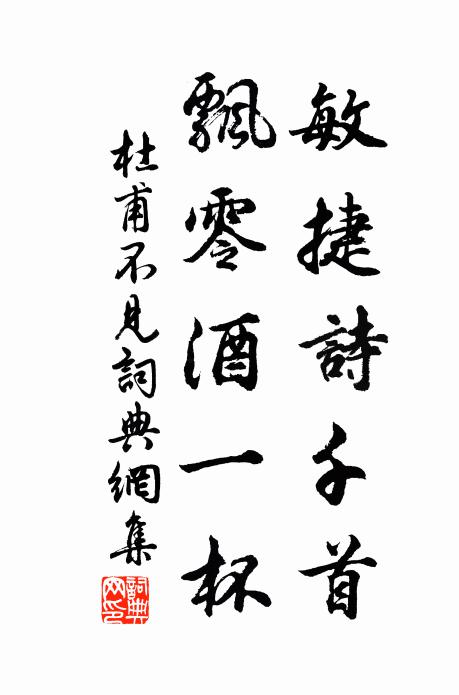 敏捷詩千首
飄零酒一杯
杜甫不見詞典網集
詞典网印